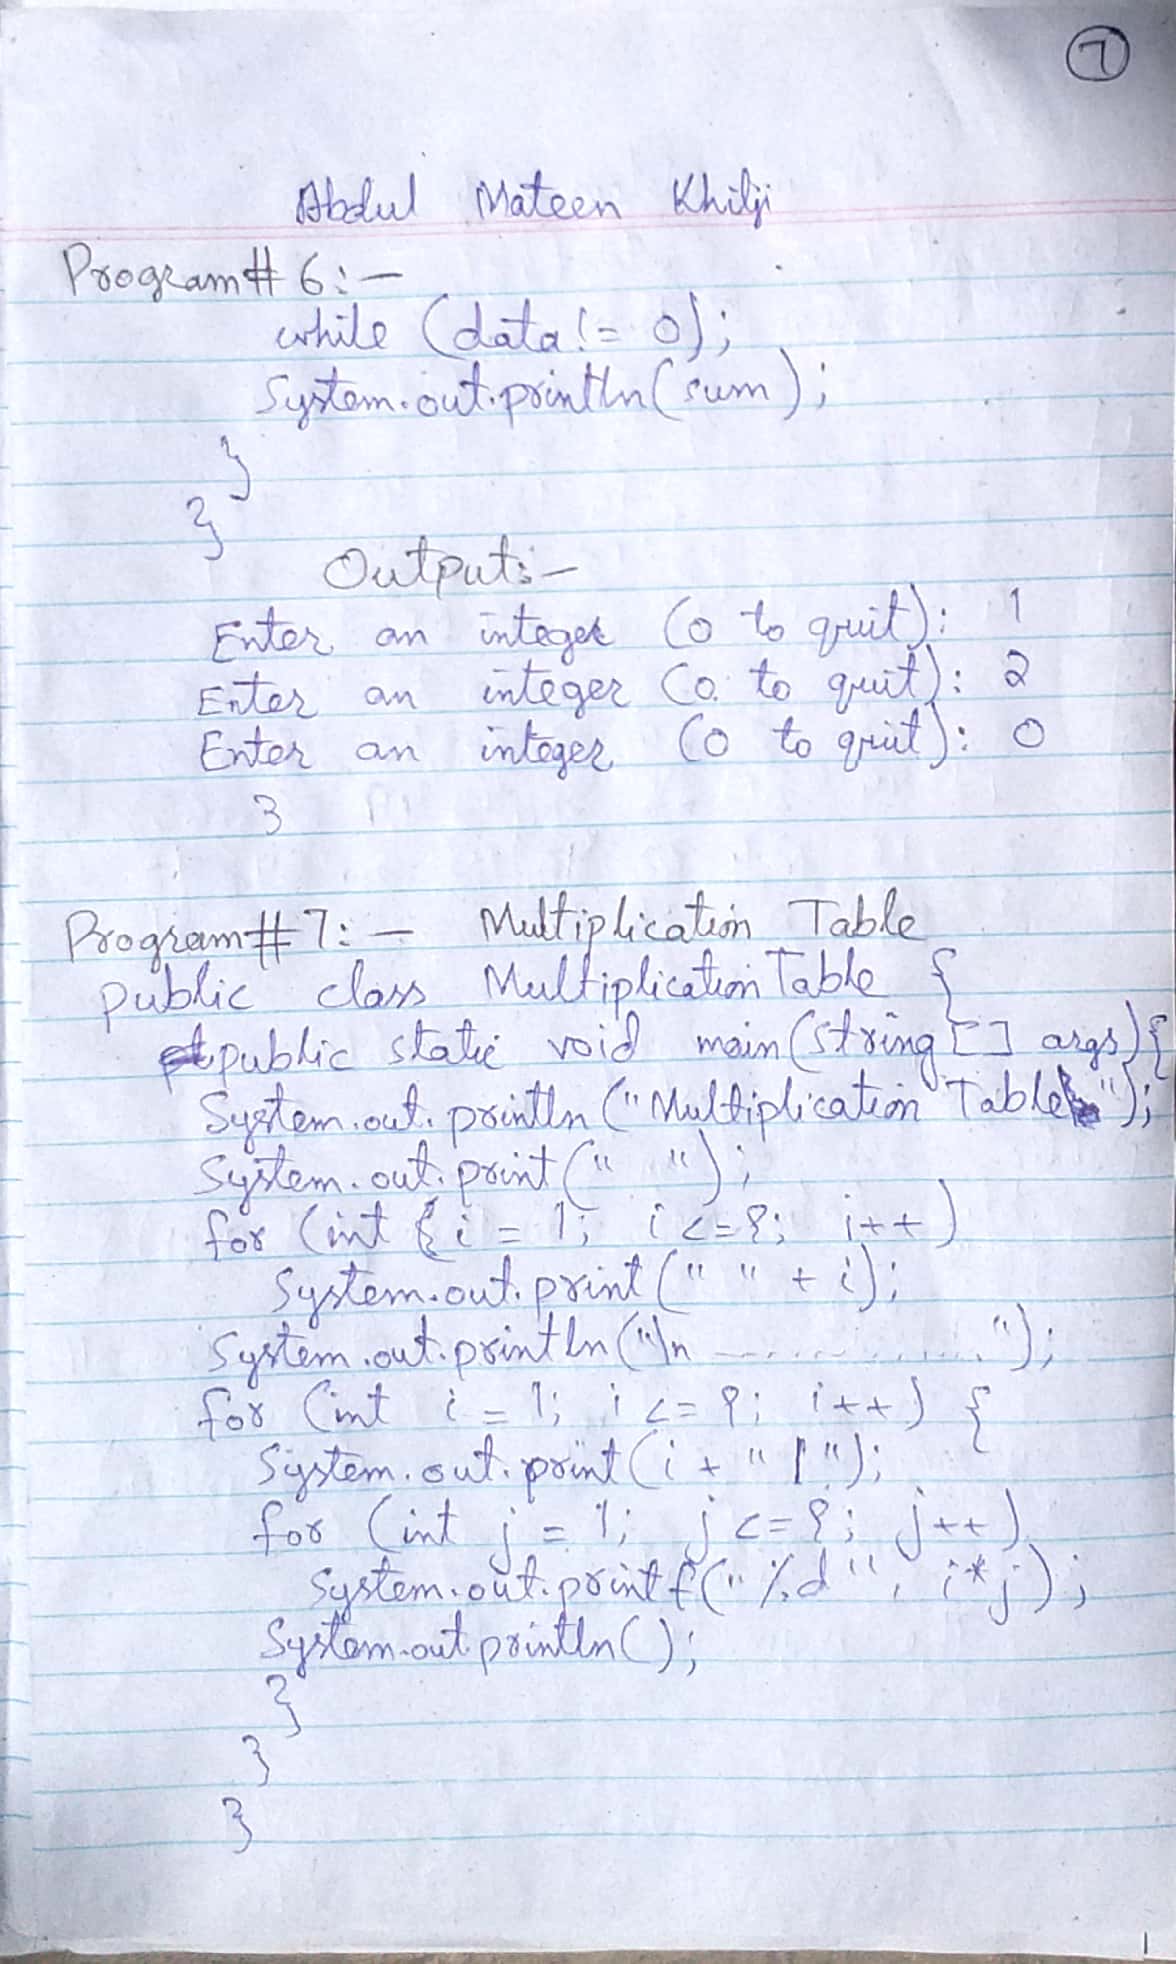 7
Abdul Mateen Khilji
Program# 6:-
while (data != 0);
System.out.println(sum);
}
}
Output:-
Enter an integer (0 to quit): 1
Enter an integer (0 to quit): 2
Enter an integer (0 to quit): 0
3
Program# 7:- Multiplication Table
public class MultiplicationTable {
public static void main(String[] args){
System.out.println("Multiplication Table");
System.out.print(" ");
for (int i = 1; i <= 9; i++)
System.out.print(" " + i);
System.out.println("\n ............. ");
for (int i = 1; i <= 9; i++) {
System.out.print(i + " | ");
for (int j = 1; j <= 9; j++)
System.out.printf("%d", i*j);
System.out.println();
}
}
}